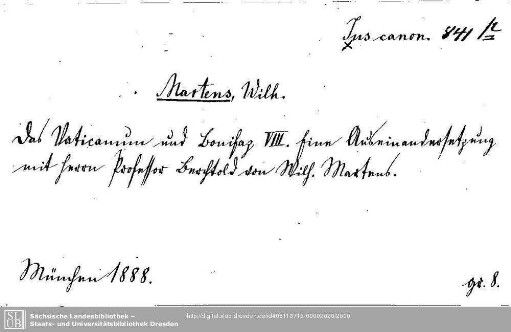 Jus canon. 841
Martens, Wilh.
Das Vaticanum und Bonifaz VIII. Eine Auseinandersetzung
mit Herrn Professor Berchtold von Wilh. Martens.
München 1888.
gr. 8.
SLUB
Sächsische Landesbibliothek –
Staats- und Universitätsbibliothek Dresden